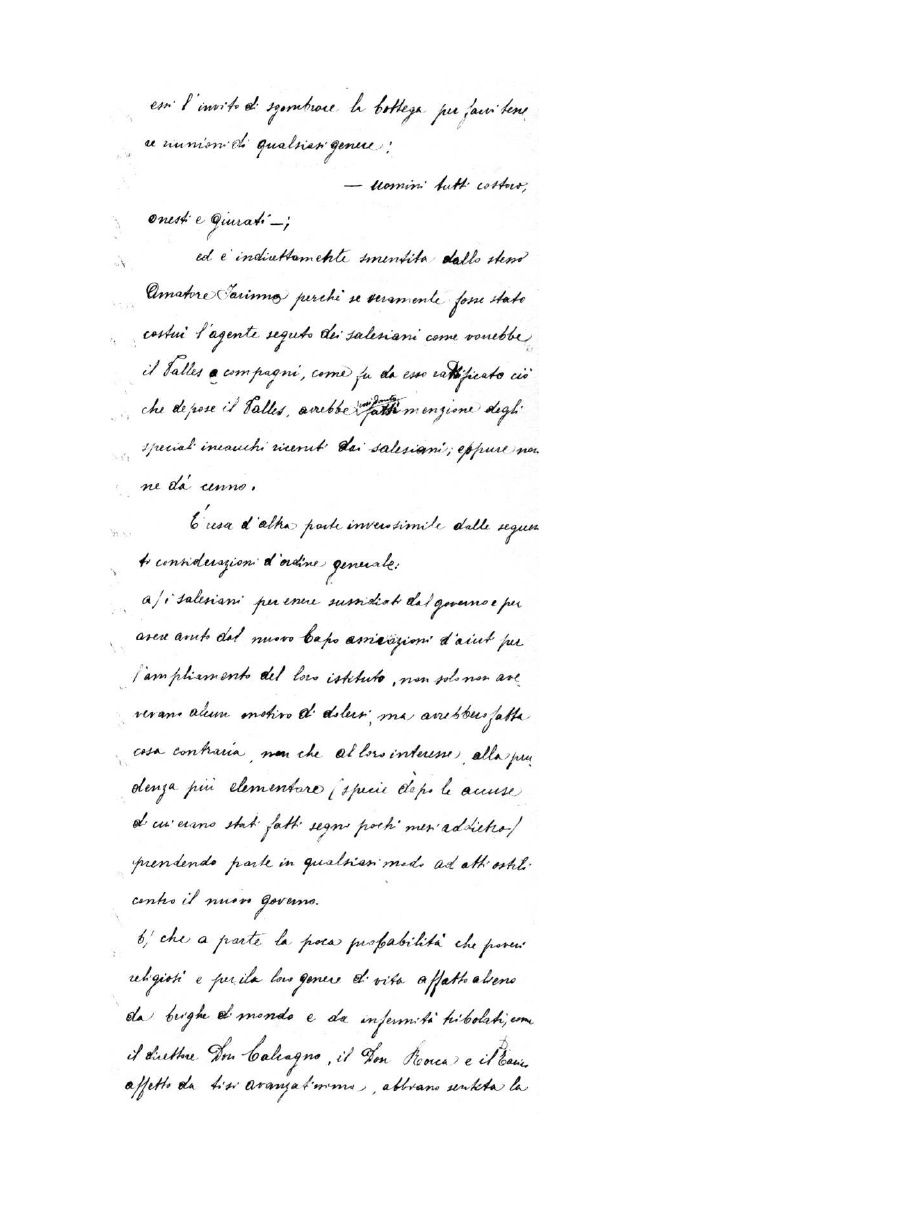 essi l'invito di sgombrare la bottega per farvi tene
re riunioni di qualsiasi genere;
— uomini tutti costoro,
onesti e giurati —;
ed è indirettamente smentita dallo stesso
Amatore perchè se veramente fosse stato
costui l'agente segreto dei salesiani come vorrebbe
il Talles e compagni, come fu da esso rattificato ciò
che depose il Talles, avrebbe menzione degli
speciali incarichi ricevuti dai salesiani; eppure non
ne dà cenno.
È resa d'altra parte inverosimile dalle seguen
ti considerazioni d'ordine generale:
a/ i salesiani per essere sussidiati dal governo e per
avere avuto dal nuovo Capo assicurazioni d'aiuti per
l'ampliamento del loro istituto, non solo non ave
vano alcun motivo di dolersi, ma avrebbero fatta
cosa contraria, non che al loro interesse, alla pru
denza più elementare (specie dopo le accuse
di cui erano stati fatti segno pochi mesi addietro)
prendendo parte in qualsiasi modo ad atti ostili
contro il nuovo governo.
b/ che a parte la poca probabilità che poveri
religiosi e per la loro genere di vita affatto alieno
da brighe di mondo e da infermità tribolati, come
il direttore Don Calcagno, il Don Rocca e il
affetto da tisi avanzatissima, abbiano sentita la